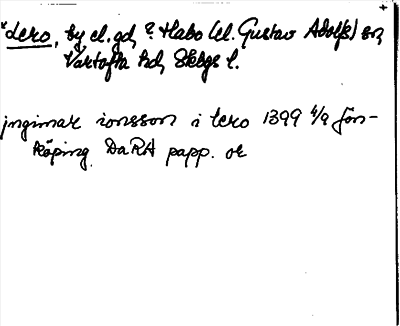 *Lero, by el. gd, ? Habo (el. Gustav Adolfs) sn,
Vartofta hd, Skbgs l.
jngimar ionsson i lero 1399 4/9 Jön-
köping DaRA papp. or